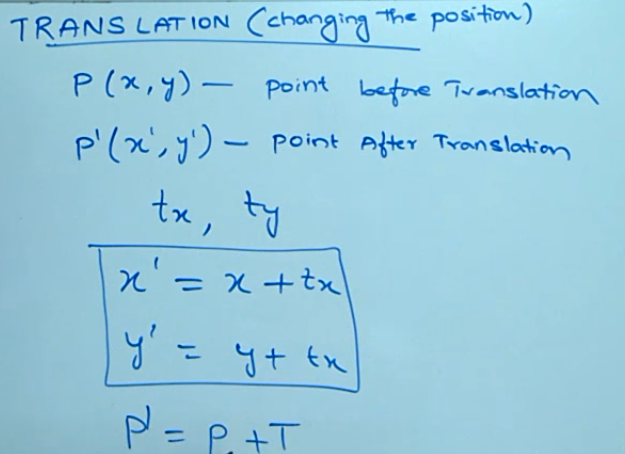 TRANSLATION (changing the position)
P(x,y) — point before Translation
P'(x',y') — point After Translation
tx, ty
x' = x + tx
y' = y + tx
P' = P + T